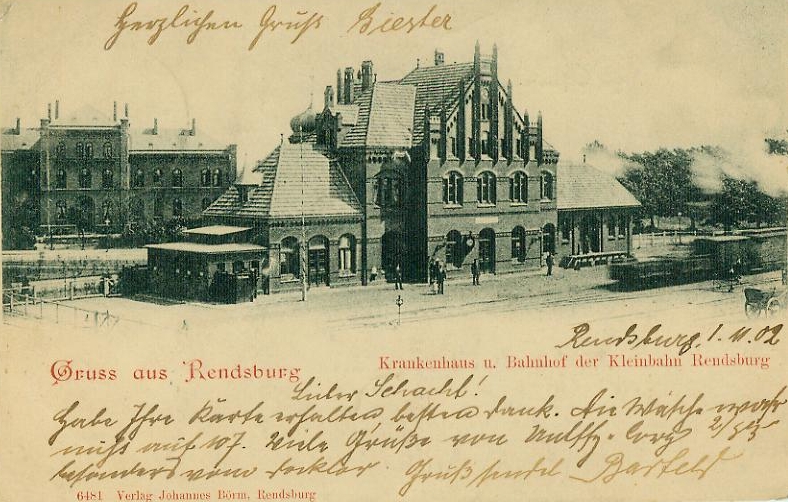 Herzlichen Gruß Biester
Rendsburg, 1. 11. 02
Gruss aus Rendsburg
Krankenhaus u. Bahnhof der Kleinbahn Rendsburg
Lieber Schacht!
Habe Ihre Karte erhalten besten Dank. Die Wäsche
auf 107. Viele Grüße von
besonders vom Gruß sendet Bartels
6481 Verlag Johannes Börm, Rendsburg